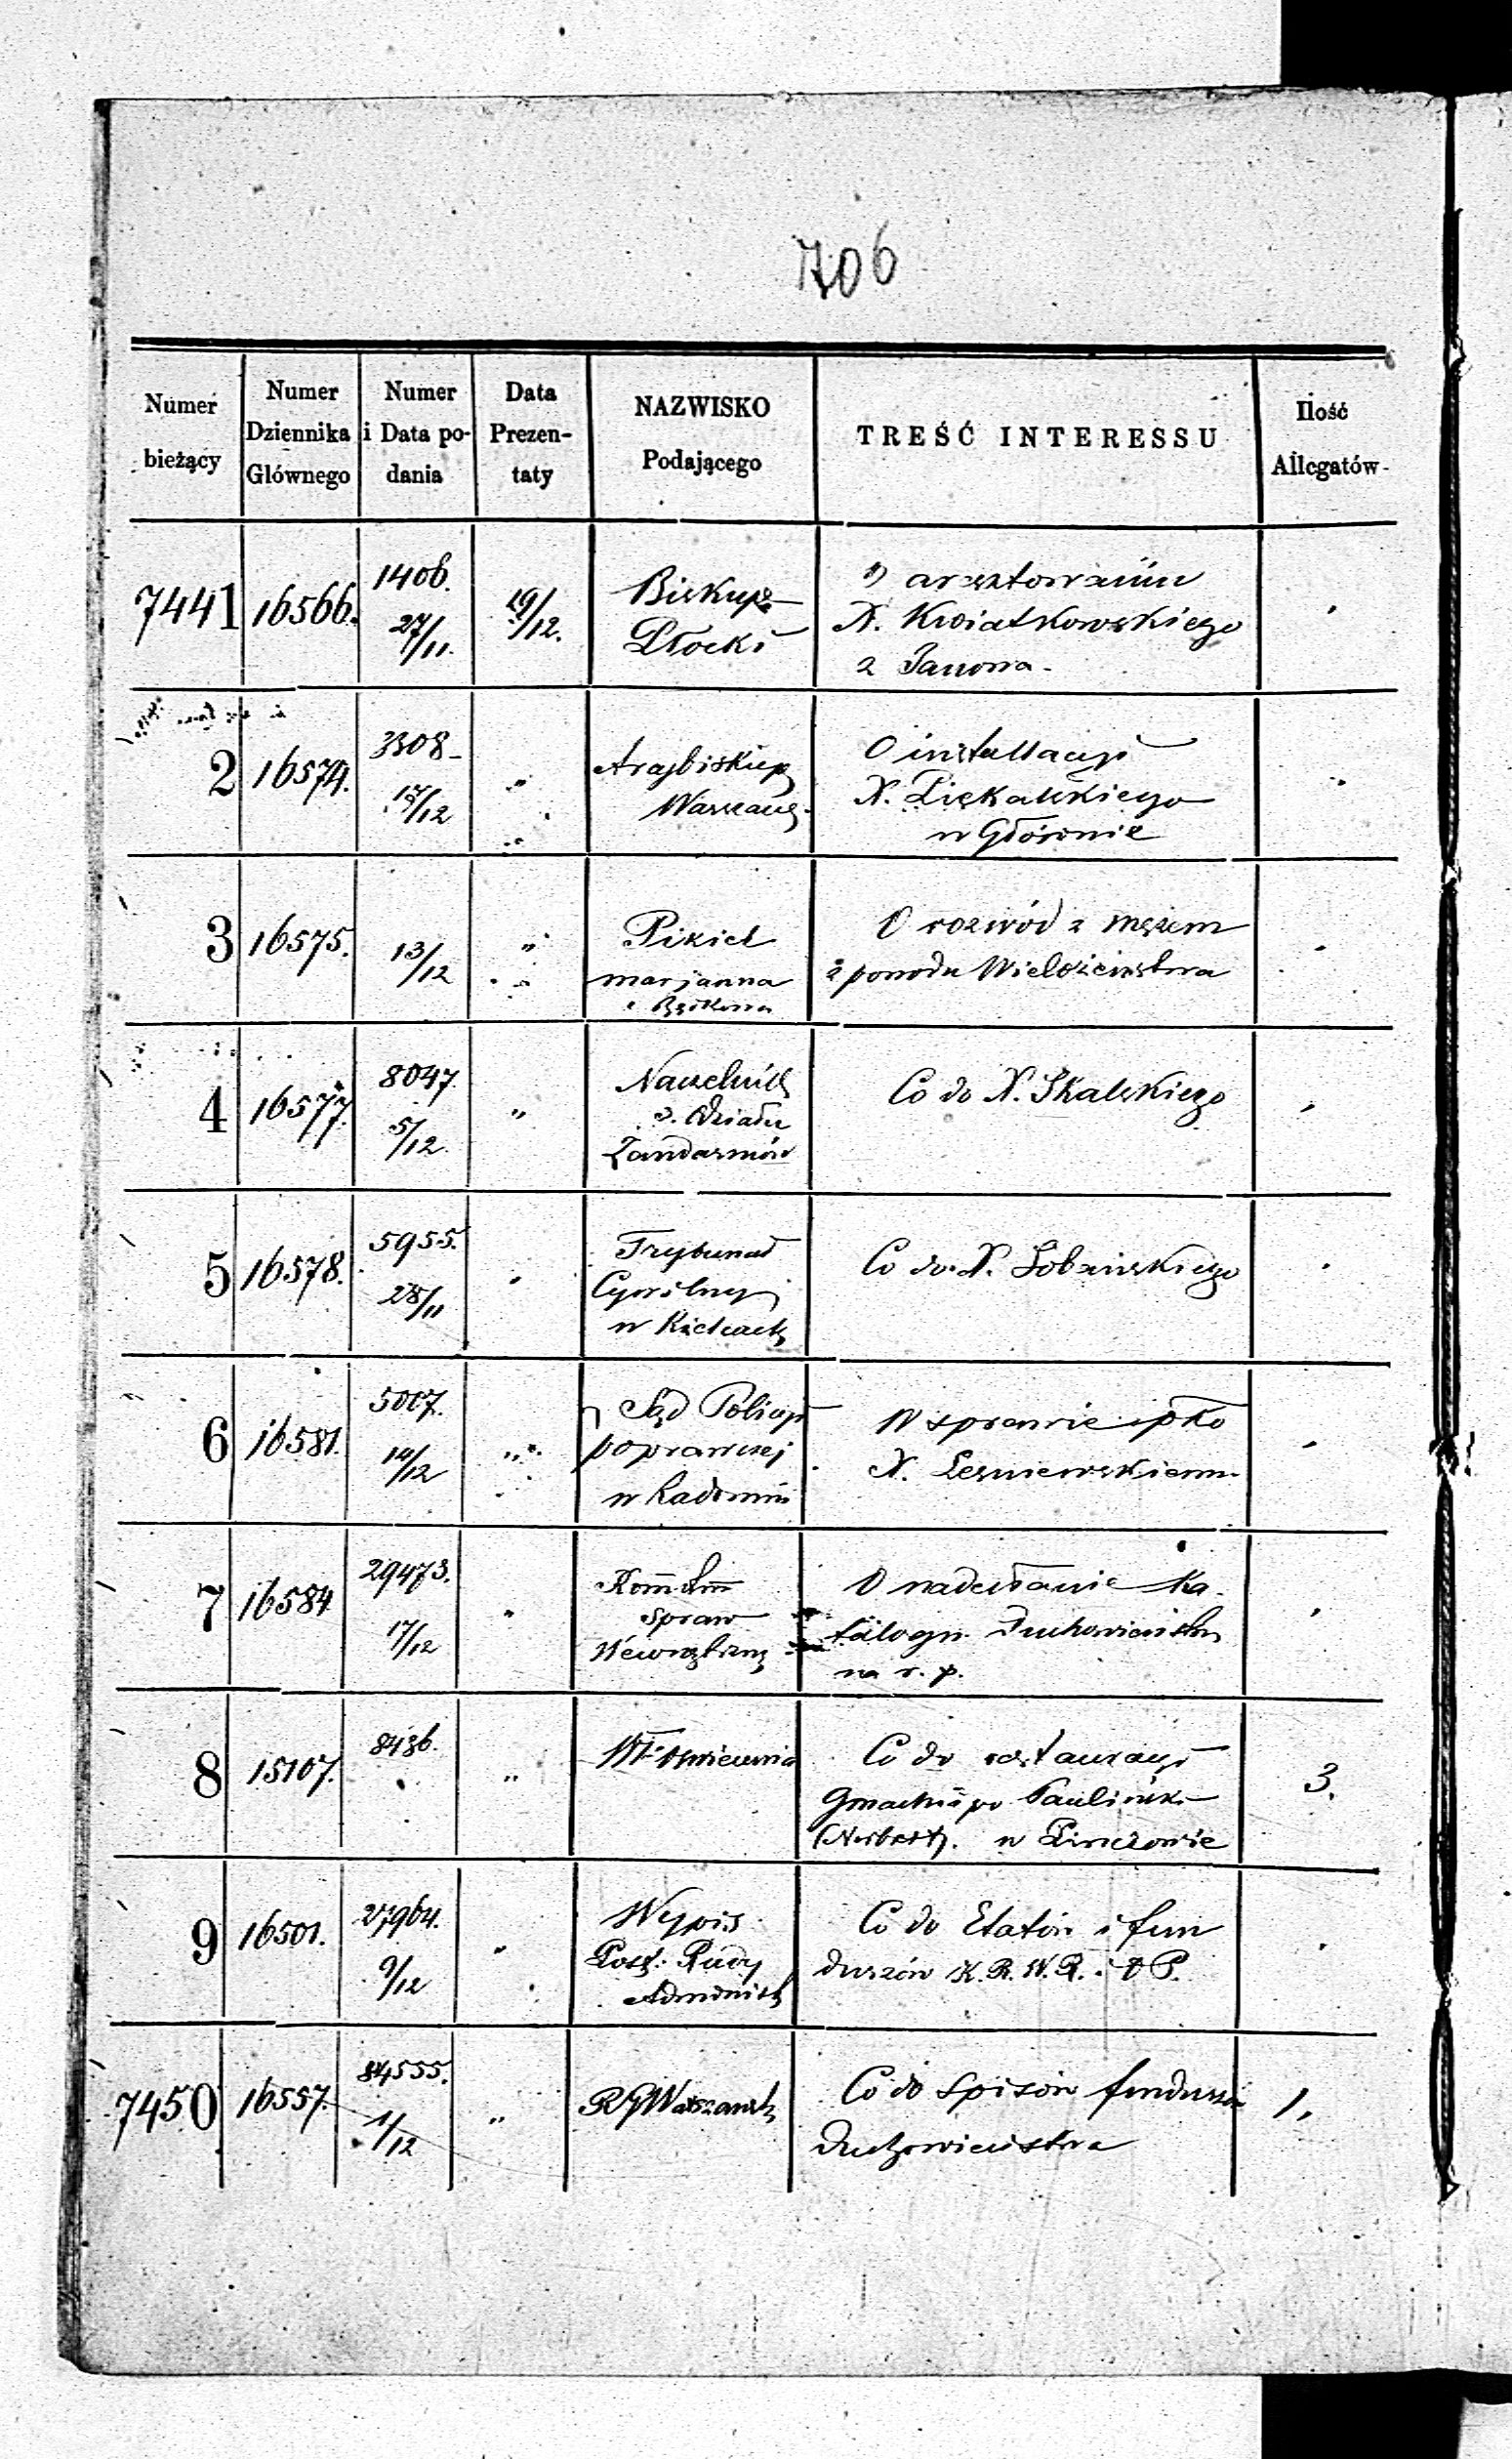 706
Numer bieżący
Numer Dziennika Głównego
Numer i Data podania
Data Prezentaty
NAZWISKO Podającego
TREŚĆ INTERESSU
Ilość Allegatów
7441 16566. 1406. 27/11. 19/12. Biskup O aresztowaniu
Płocki X. Kwiatkowskiego
z Janowa
2 16574. 3308 17/12 " Arcybiskup O installacyi
Warszaws. X. Piękalskiego
w Głównie
3 16575. 13/12 " Pikiel O rozwód z mężem
marjanna z powodu Wielożeństwa
4 16577. 8047. 5/12 " Naczelnik Co do X. Skalskiego
Oddziału
Żandarmów
5 16578. 5955. 28/11 " Trybunał Co do X. Sobańskiego
Cywilny
w Kielcach
6 16581. 5007. 10/12 " Sąd Policyi W sprawie pko
poprawczej X. Leśniewskiemu
w Radomiu
7 16584 29473. 17/12 " O nadesłanie Ka-
spraw talogu Duchowieństwa
Wewnętrzny na r. p.
8 15107. 8436. " Wł: Oświecenia Co do restauracyi 3.
Gmachu po Paulińsk.
(Norbert). w Pinczowie
9 16501. 27964. 9/12 " Wypis Co do Etatów i fun
Post: Rady duszów K. R. W. R. i O P.
Administ
7450 16557. 84555. 1/12 " RGWarszawsk Co do Spisów funduszów 1.
duchowieństwa